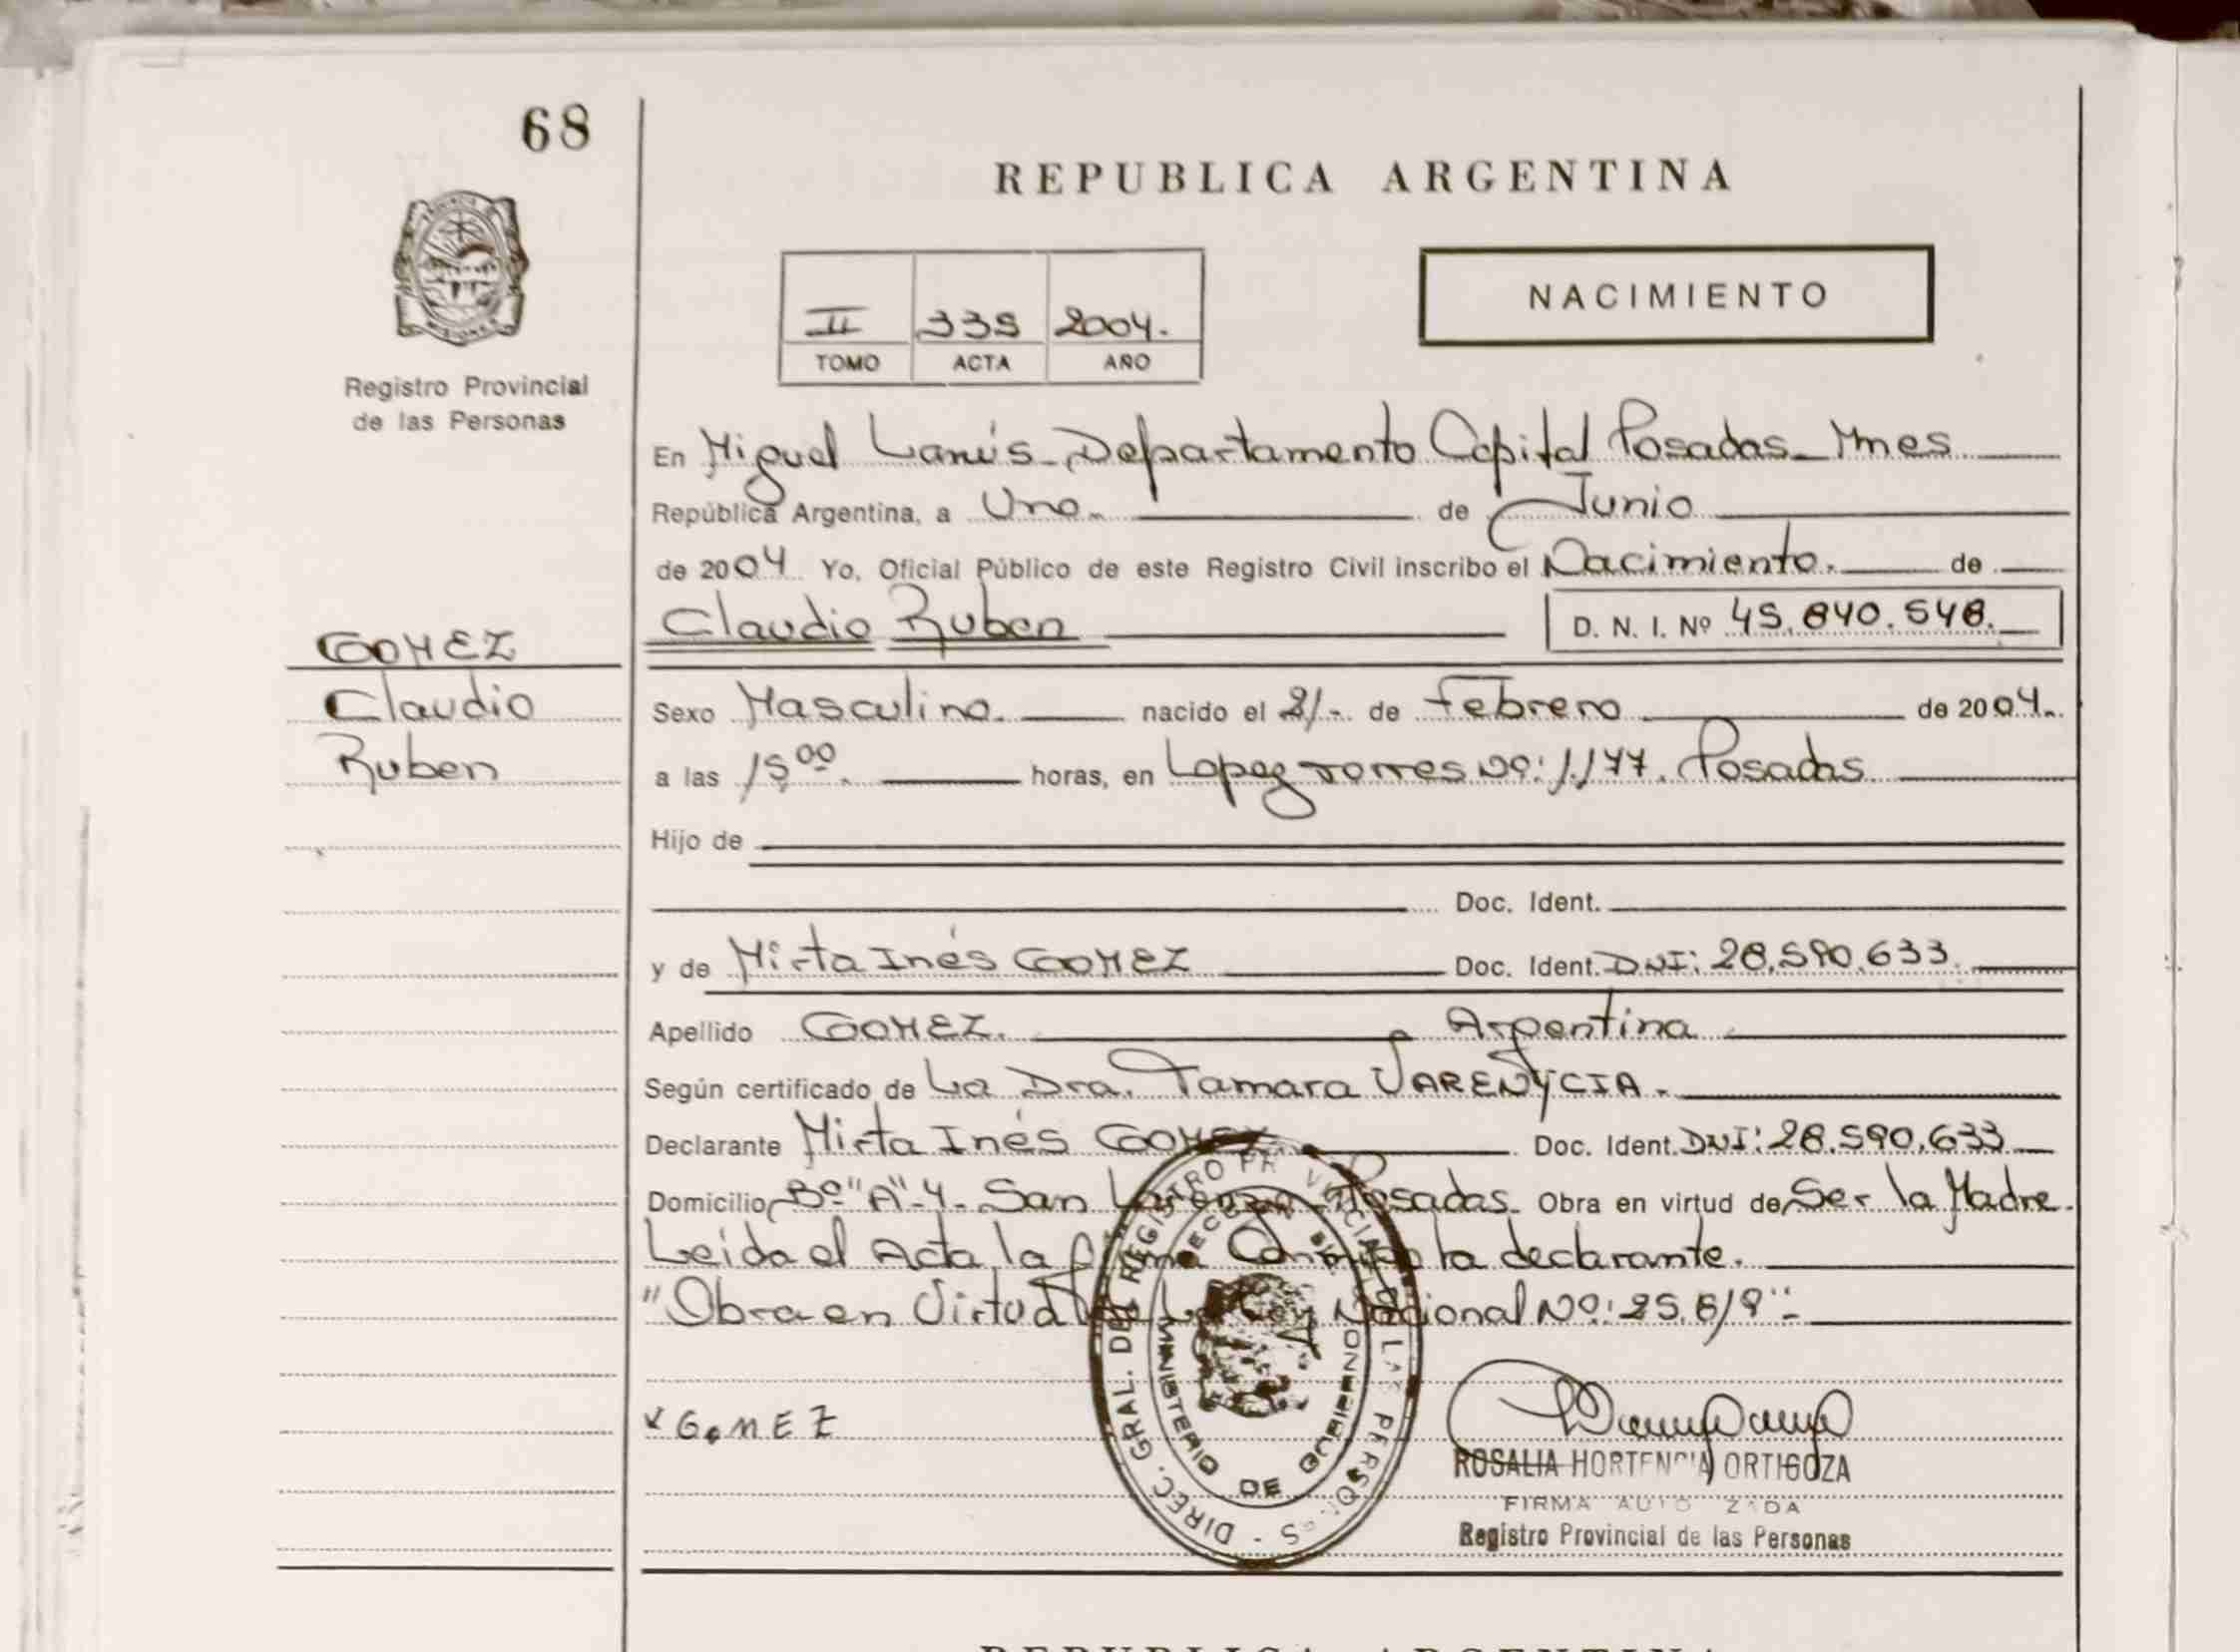 68
REPUBLICA ARGENTINA
NACIMIENTO
II 335 2004.
TOMO ACTA AÑO
Registro Provincial
de las Personas
En Miguel Lanús - Departamento Capital Posadas - Mnes
República Argentina, a Uno. de Junio
de 2004. Yo, Oficial Público de este Registro Civil inscribo el Nacimiento. de
Claudio Ruben D. N. I. Nº 45.840.548.
GOMEZ
Claudio
Ruben
Sexo Masculino. nacido el 21-. de Febrero de 2004.
a las 15,00. horas, en Lopez Torres Nº: 1.177. Posadas
Hijo de
Doc. Ident.
y de Mirta Inés GOMEZ Doc. Ident. DNI: 28.590.633.
Apellido GOMEZ. Argentina
Según certificado de La Dra. Tamara VARENYCIA.
Declarante Mirta Inés GOMEZ. Doc. Ident. DNI: 28.590.633
Domicilio Bº "A"-4- San Lorenzo - Posadas. Obra en virtud de Ser la Madre.
Leida el Acta, la firma Conmigo la declarante.
"Obra en Virtud de La Ley Nacional Nº: 25.819"-
GOMEZ
DIREC. GRAL. DEL REGISTRO PROVINCIAL DE LAS PERSONAS
MINISTERIO DE GOBIERNO
ROSALIA HORTENCIA ORTIGOZA
FIRMA AUTORIZADA
Registro Provincial de las Personas
REPUBLICA ARGENTINA